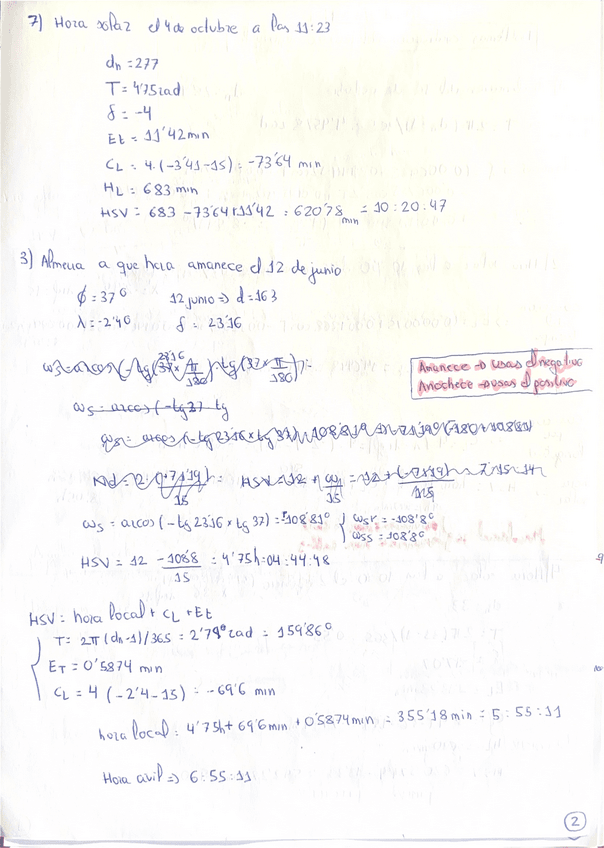 7) Hora solar el 4 de octubre a las 11:23
dn = 277
T = 4'75 rad
δ = -4
Et = 11'42 min
CL = 4·(-3'41-15) = -73'64 min
HL = 683 min
HSV = 683 - 73'64 + 11'42 = 620'78 min = 10:20:47
3) Almeria a que hora amanece el 12 de junio
ϕ = 37º 12 junio => d = 163
λ = -2'4º δ = 23'16
Amanece -> usas el negativo
Anochece -> usas el positivo
ωs = arcos (-tg 37 tg
ωs = arcos (-tg 23'16 × tg 37) = 108'81º { ωsr = -108'8º
ωss = 108'8º
HSV = 12 -108'8/15 = 4'75h = 04:44:48
HSV = hora local + CL + Et
T = 2π (dn-1)/365 = 2'79 rad = 159'86º
ET = 0'5874 min
CL = 4 (-2'4-15) = -69'6 min
hora local = 4'75h + 69'6 min + 0'5874 min = 355'18 min = 5:55:11
Hora civil => 6:55:11
2